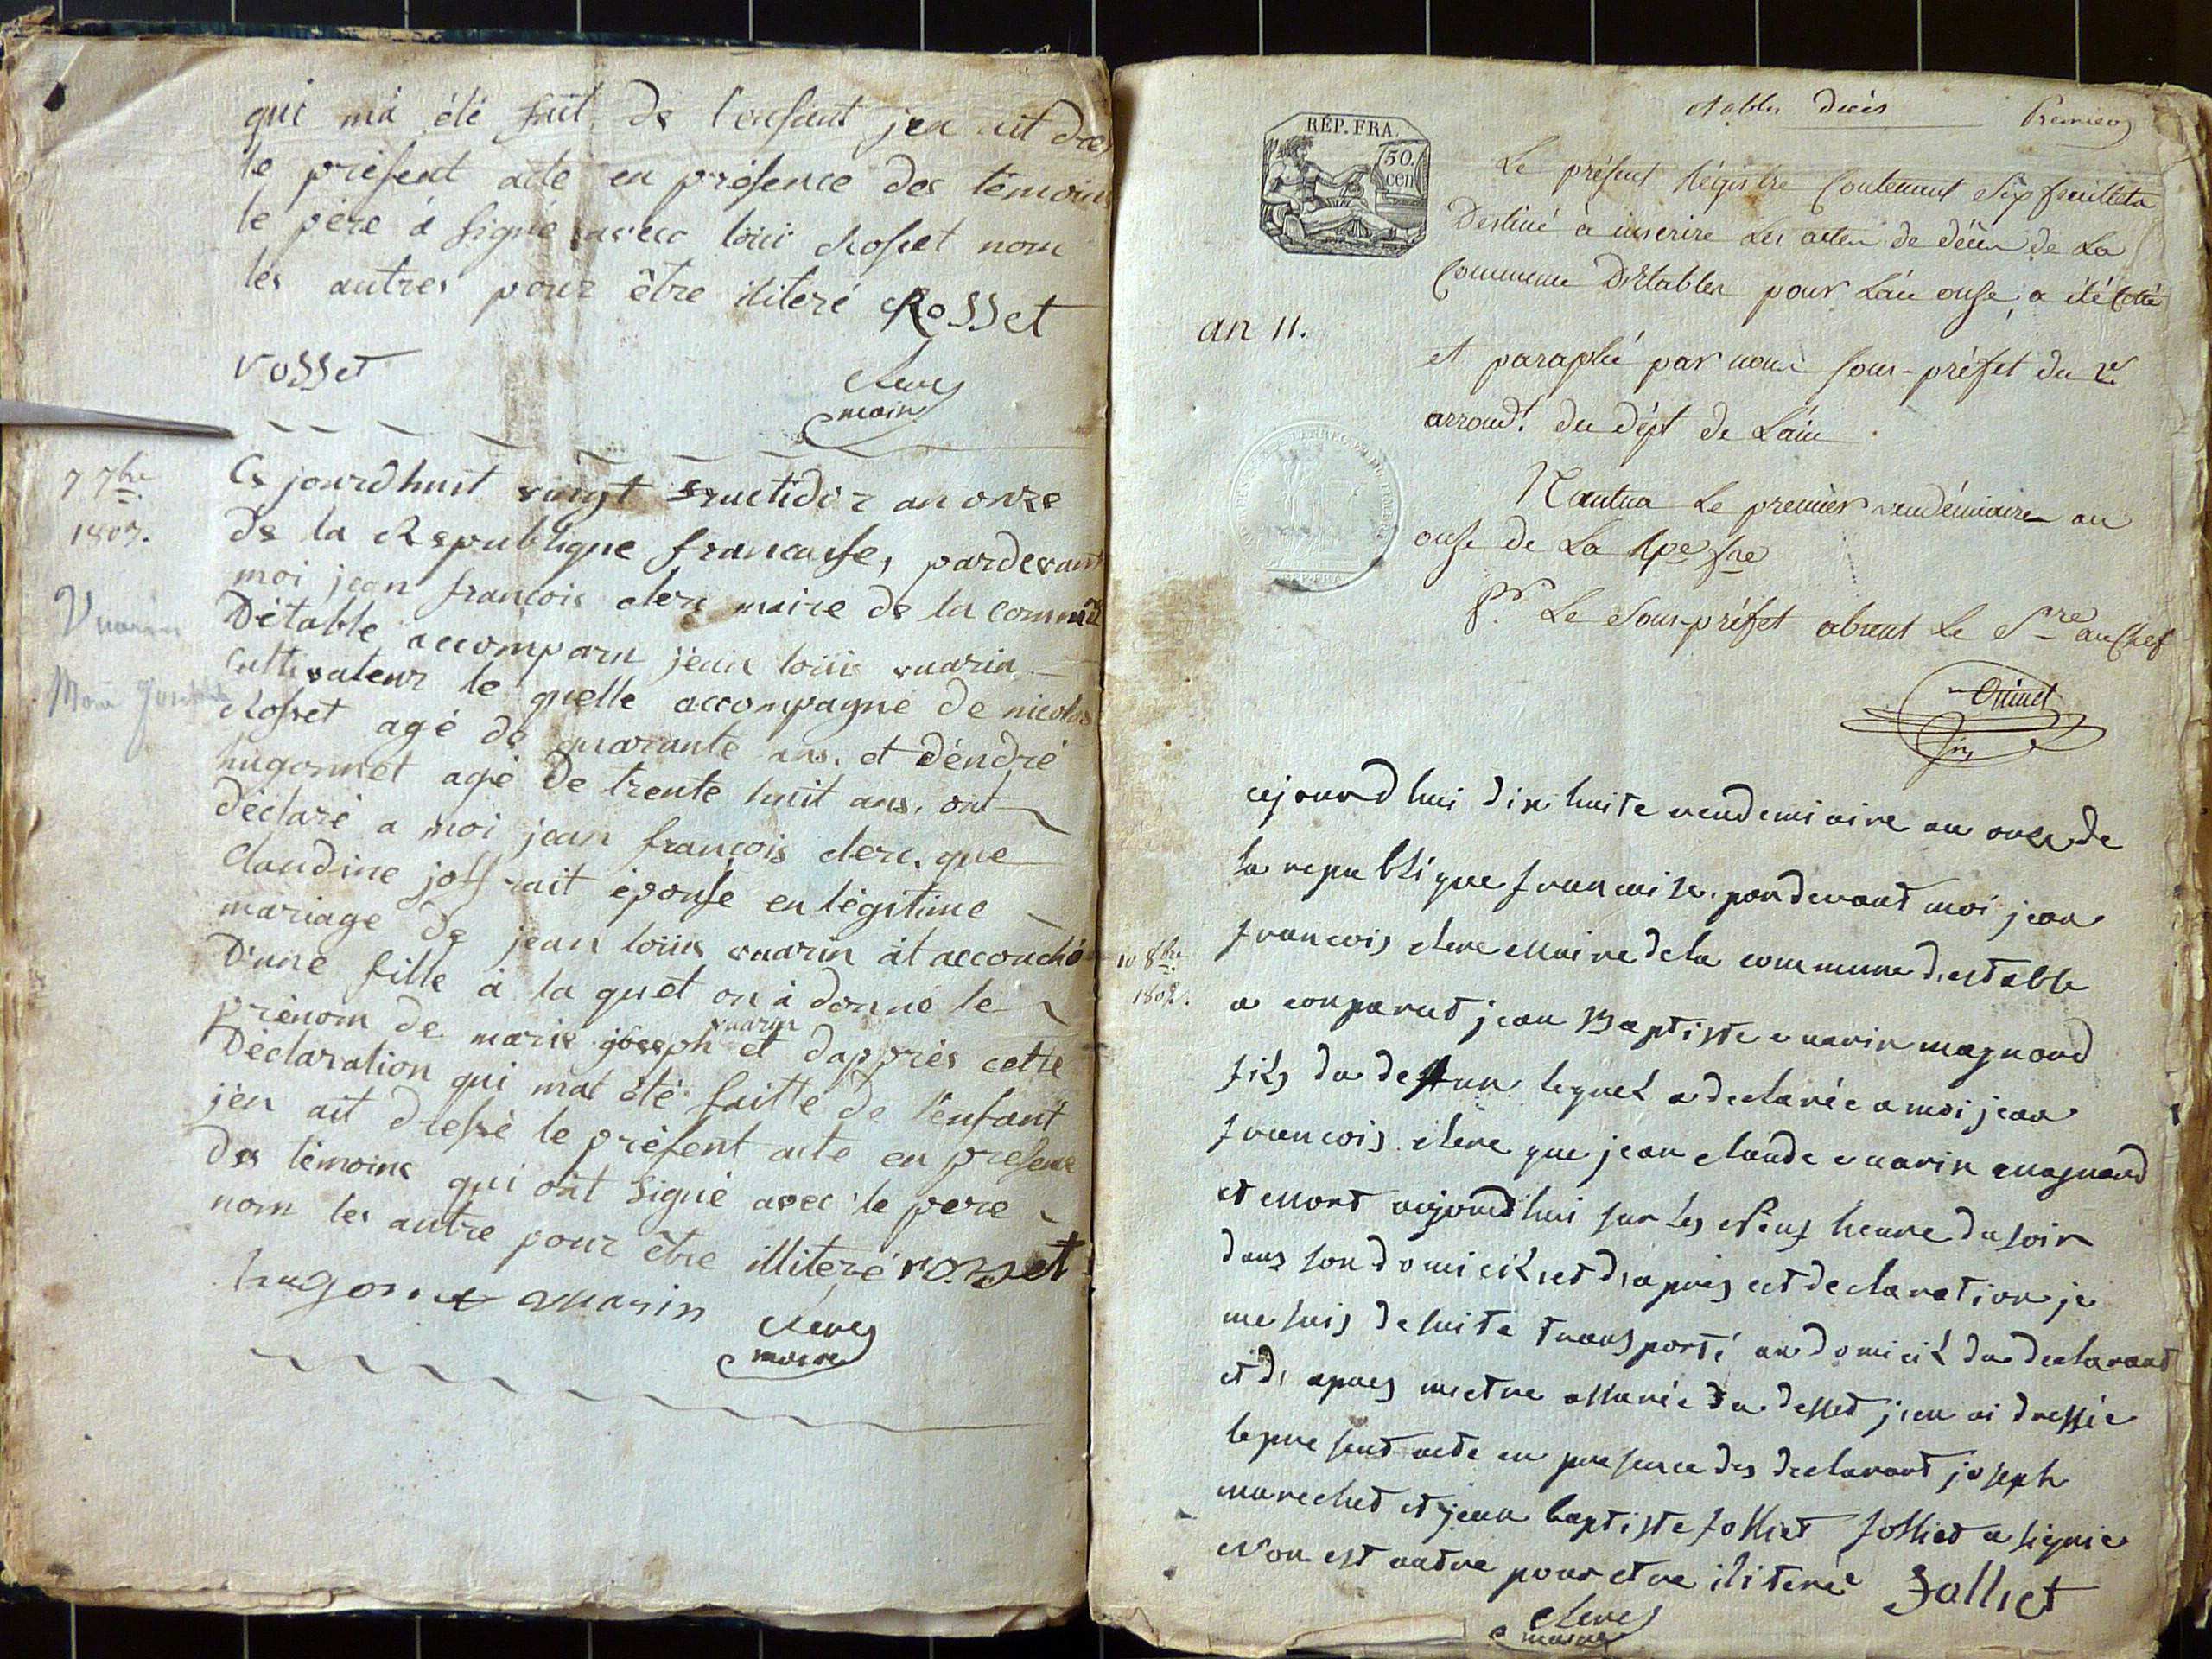 qui ma été fait de l'enfant jen ait dres
le présent acte en présence des témoins
le père à signé avec loüi Rosset nom
les autres pour être iliteré Rosset
rosset
Clerc
maire
7 7bre
1803.
Vuarin
Marie Josephte
Ce jourdhuit vingt fructidor an onze
de la Republique francaise, pardevant
moi jean françois clerc maire de la commune
Détable accomparu jean loüis vuarin
Cultivateur le quelle accompagné de nicolas
Rosset agé de quarante ans. et déndré
hugonnet agé De trente huit ans, ont
déclaré a moi jean françois clerc, que
Claudine joffrait éponse en légitime
mariage de jean loüis vuarin àt accouché
D'une fille à la quet on à donné le
prénom de marie joseph vuarin et dapprès cette
Déclaration qui mat été faitte de l'enfant
jén ait dressé le présent acte en presence
des témoins qui ont signé avec le pere
nom les autre pour être illiteré rosset
hugonet vuarin
Clerc
maire
Etables Décès
Premier
RÉP. FRA.
50.
cen
Le présent Régistre Contenant Six feuillets
Destiné à inscrire Les actes de décès de La
Commune D'Etables pour L'an onze, a été Coté
an 11.
et paraphé par nous Sous-préfet du 2e
arrond.t du dép.t de L'ain
Nantua Le premier vendémiaire an
onze de La Rpe fre
Pr. Le Sous-préfet absent Le Sre en Chef
REP. FRA.
10 8bre
1802.
cejourdhui dix huite vendemiaire an onze de
la republique francaise. pardevant moi jean
francois clerc Maire dela commune destable
a conparut jean Baptiste vuarin magnard
fils du defun lequel a declarée a moi jean
francois clerc que jean claude vuarin magnard
et Mort aujourdhui sur les Neuf heure du soir
dans son domicil, et d'apres cet declaration je
me suis de suite transporté au domicil du declarant
et d'apres metre assurée du desset jen ai dressée
le present acte en presence des declarant joseph
marechet et jean baptiste jolliet jolliet a signie
Non est autre pour etre iliterée Jolliet
Clerc
maire